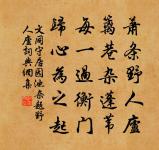 萧条野人庐
篱巷杂蓬苇
每一过衡门
归心为之起
文同守居园池杂题野
人庐词典网集